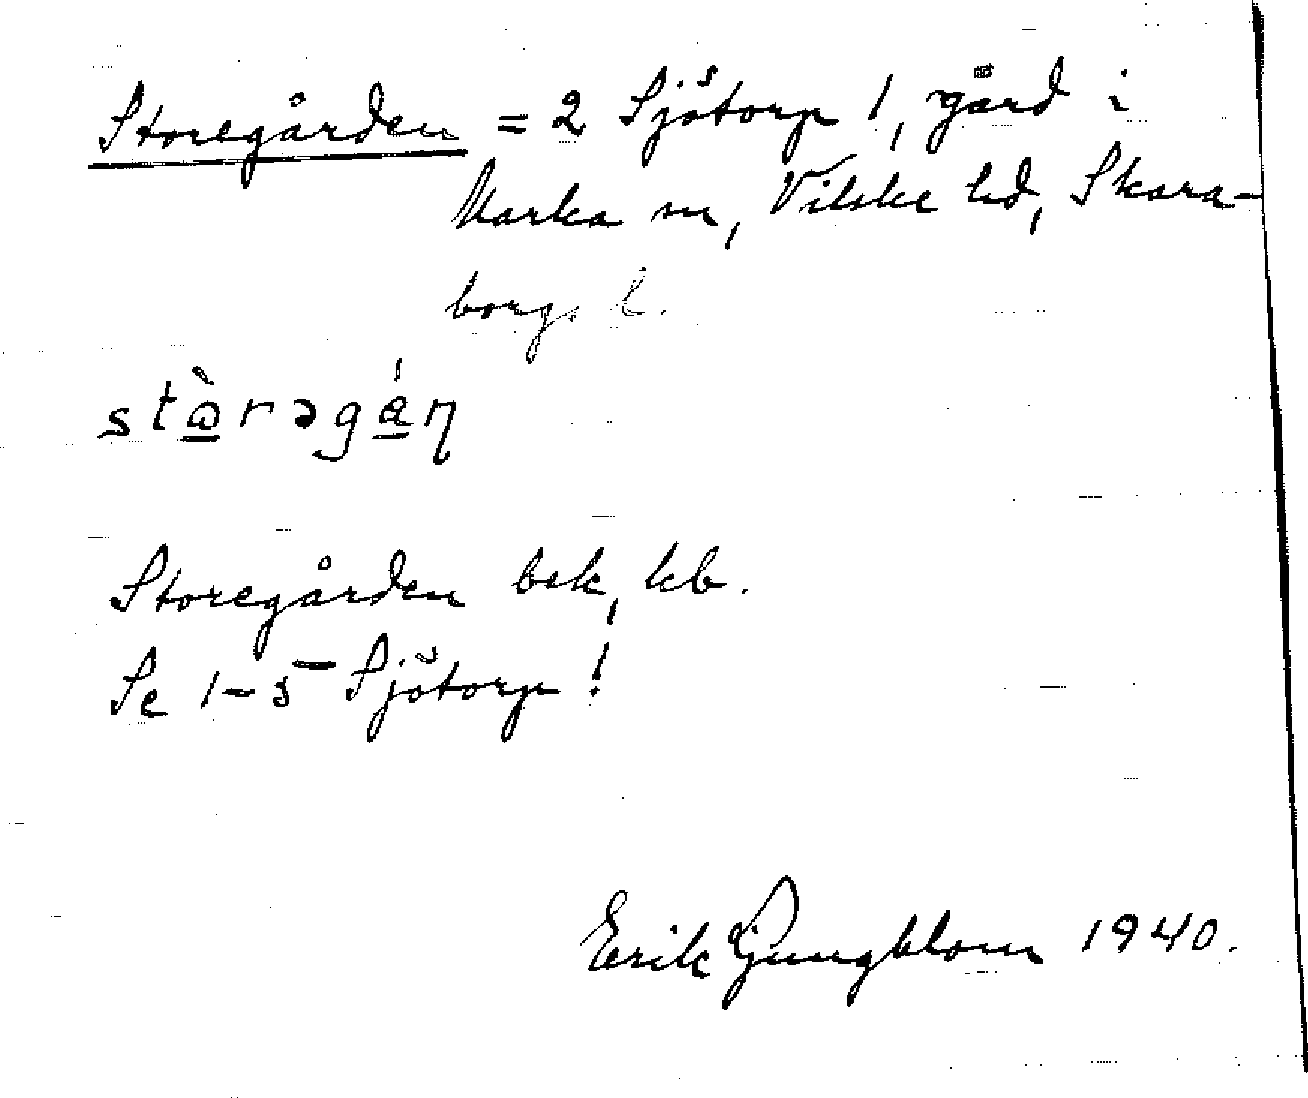 Storegården = 2 Sjötorp 1, gård i
Marka sn, Vilske hd, Skara-
borgs l.
Storegården bek, kb.
Se 1-5 Sjötorp!
Erik Ljungblom 1940.